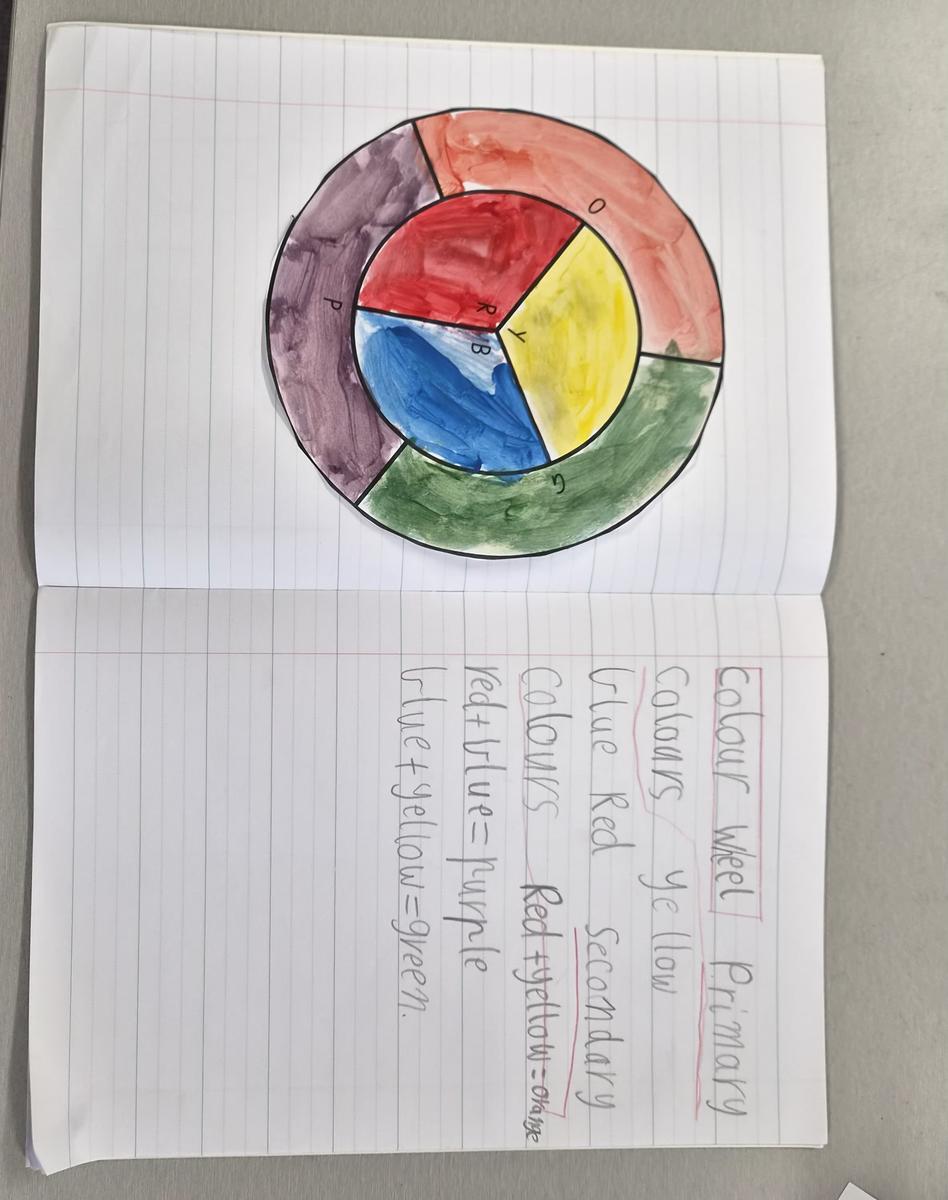 O
R
Y
B
P
G
Colour Wheel Primary
Colours Yellow
blue Red Secondary
Colours Red+yellow=orange
red+blue=purple
blue+yellow=green.